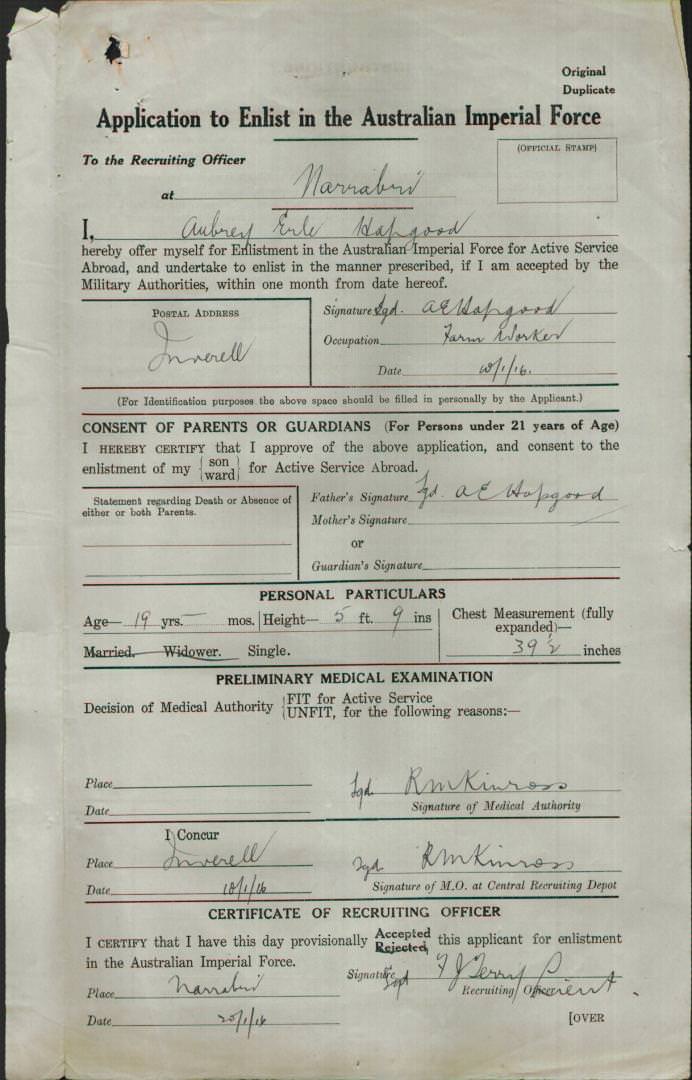 Original
Duplicate
Application to Enlist in the Australian Imperial Force
To the Recruiting Officer
(OFFICIAL STAMP)
at Narrabri
I, Aubrey Erle Hapgood
hereby offer myself for Enlistment in the Australian Imperial Force for Active Service
Abroad, and undertake to enlist in the manner prescribed, if I am accepted by the
Military Authorities, within one month from date hereof.
POSTAL ADDRESS
Inverell
Signature Sgd. A E Hapgood
Occupation Farm Worker
Date 10/1/16.
(For Identification purposes the above space should be filled in personally by the Applicant.)
CONSENT OF PARENTS OR GUARDIANS (For Persons under 21 years of Age)
I HEREBY CERTIFY that I approve of the above application, and consent to the
enlistment of my { son ward } for Active Service Abroad.
Statement regarding Death or Absence of
either or both Parents.
Father's Signature Sgd. A E Hapgood
Mother's Signature
or
Guardian's Signature
PERSONAL PARTICULARS
Age— 19 yrs. — mos. Height— 5 ft. 9 ins
Chest Measurement (fully
expanded)—
39 1/2 inches
Married. Widower. Single.
PRELIMINARY MEDICAL EXAMINATION
Decision of Medical Authority { FIT for Active Service
UNFIT, for the following reasons:—
Place
Sgd. R M Kinross
Date
Signature of Medical Authority
I Concur
Place Inverell
Sgd R M Kinross
Date 10/1/16
Signature of M.O. at Central Recruiting Depot
CERTIFICATE OF RECRUITING OFFICER
I CERTIFY that I have this day provisionally Accepted Rejected, this applicant for enlistment
in the Australian Imperial Force.
Signature F J Terry
Place Narrabri
Recruiting Officer
Date 20/1/16
[OVER